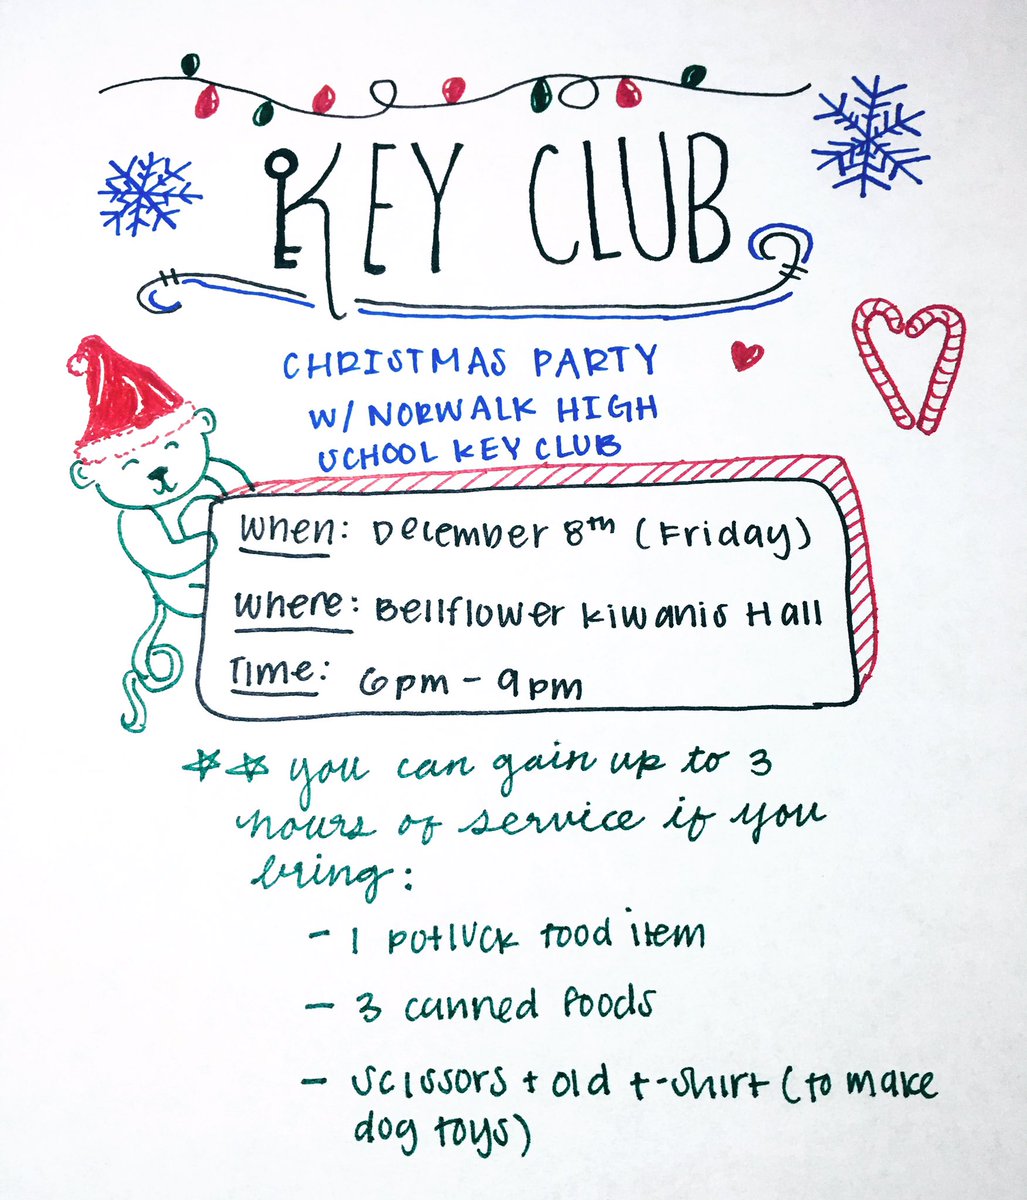 KEY CLUB
CHRISTMAS PARTY
W/ NORWALK HIGH
SCHOOL KEY CLUB
When: December 8th (Friday)
Where: Bellflower Kiwanis Hall
Time: 6pm - 9pm
** you can gain up to 3
hours of service if you
bring:
- 1 potluck food item
- 3 canned foods
- scissors + old t-shirt (to make
dog toys)